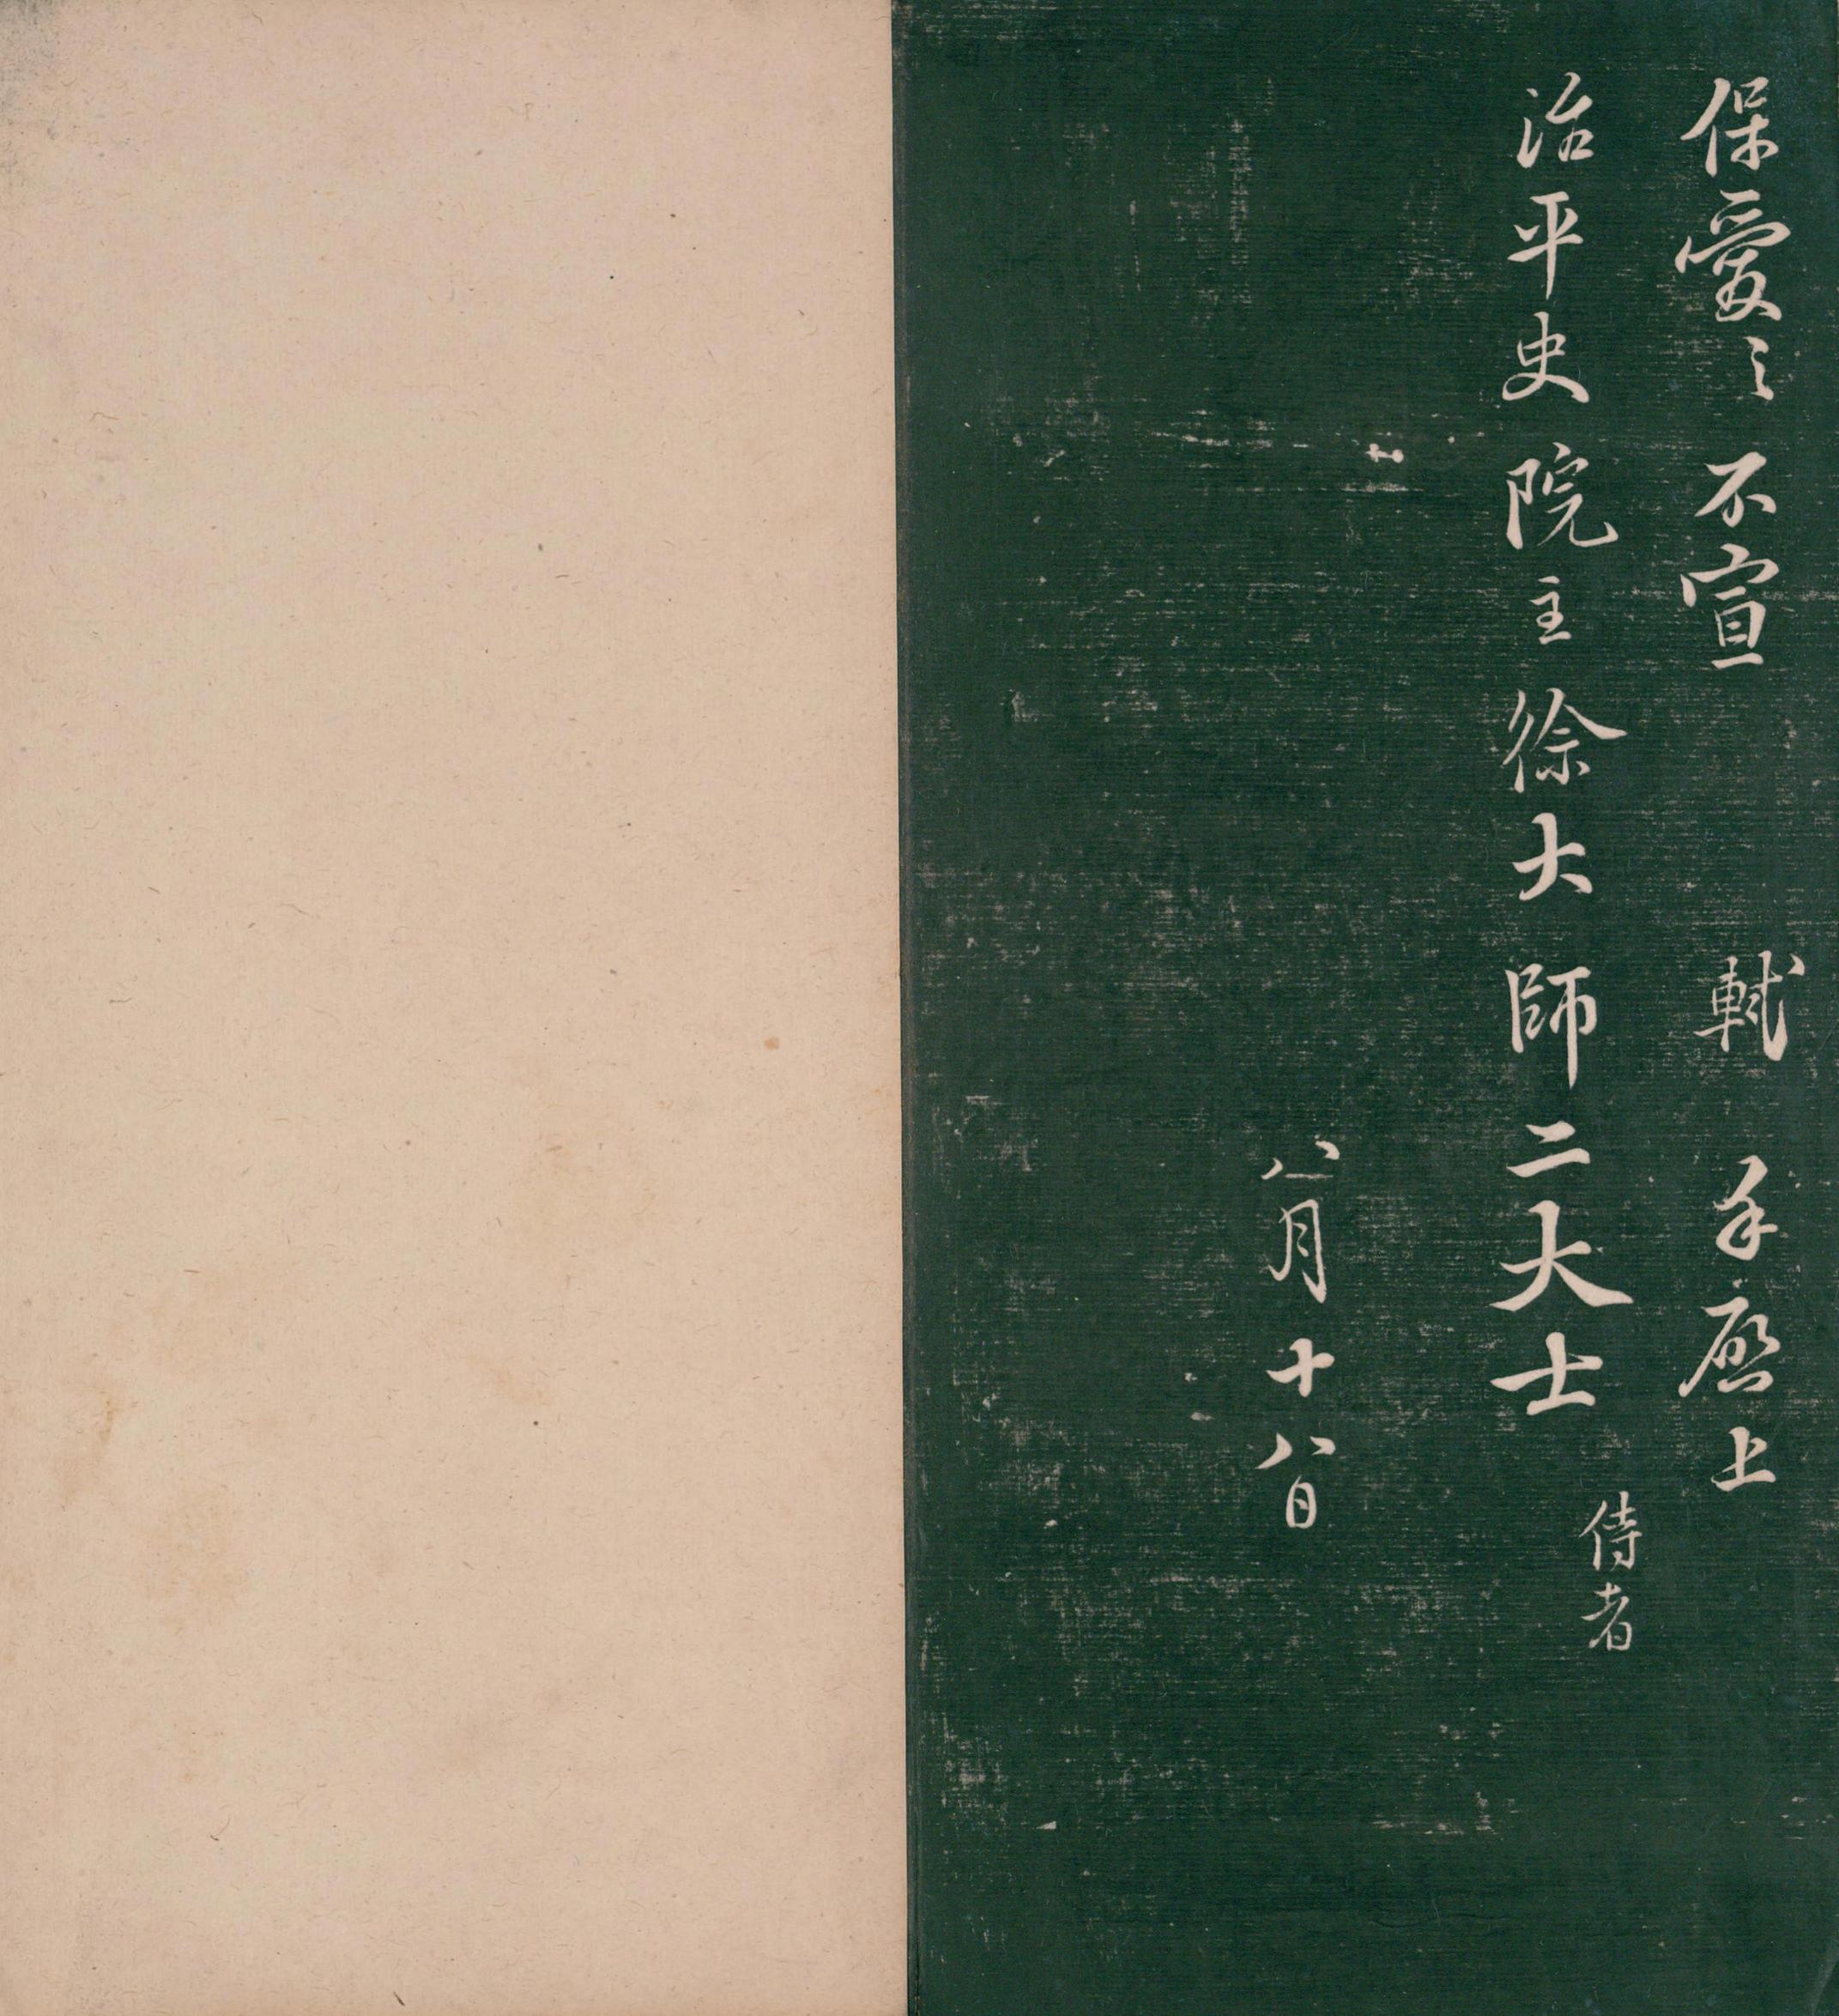 保愛〻不宣 軾手啟上
治平史院主徐大師二大士侍者
八月十八日